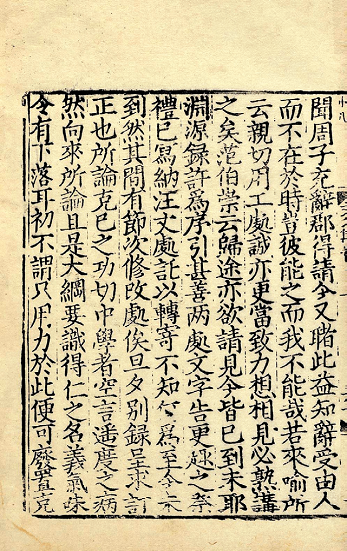 聞周子充辭郡得請今又睹此益知辭受由人
而不在於時豈彼能之而我不能哉若來喻所
云親切用工處誠亦更當致力想相見必熟講
之矣范伯崇云歸途亦欲請見今皆已到未耶
淵源録許為序引甚善兩處文字告更趣之祭
禮已寫納汪丈處託以轉寄不知 為至今未
到然其間有節次修改處俟旦夕別録呈求訂
正也所論克己之功切中學者空言遙度之病
然向來所論且是大綱要識得仁之名義氣味
令有下落耳初不謂只用力於此便可廢置克